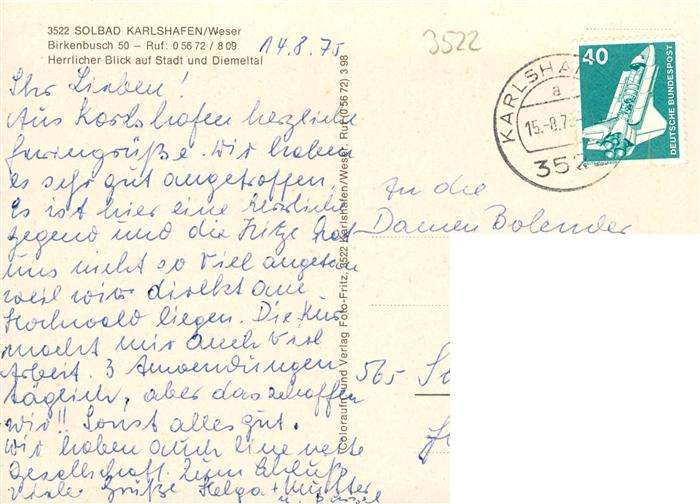 3522 SOLBAD KARLSHAFEN/Weser
Birkenbusch 50 - Ruf: 0 56 72 / 8 09
Herrlicher Blick auf Stadt und Diemeltal
14.8.75
3522
Ihr Lieben!
Aus Karlshafen herzliche
Feriengrüße. Wir haben
es sehr gut angetroffen.
Es ist hier eine herrliche
Gegend und die Hitze hat
uns nicht so viel angetan
weil wir direkt am
Hochwald liegen. Die Kur
macht mir auch viel
Arbeit. 3 Anwendungen
täglich, aber das schaffen
wir!! Sonst alles gut.
Wir haben auch eine nette
Gesellschaft. Zum Schluß
viele Grüße Helga + Mutter
u.
Coloraufn. und Verlag Foto-Fritz, 3522 Karlshafen/Weser, Ruf (0 56 72) 3 98
40
DEUTSCHE BUNDESPOST
KARLSHA
a
15.-8.75
352
An die
Damen Bolender
565